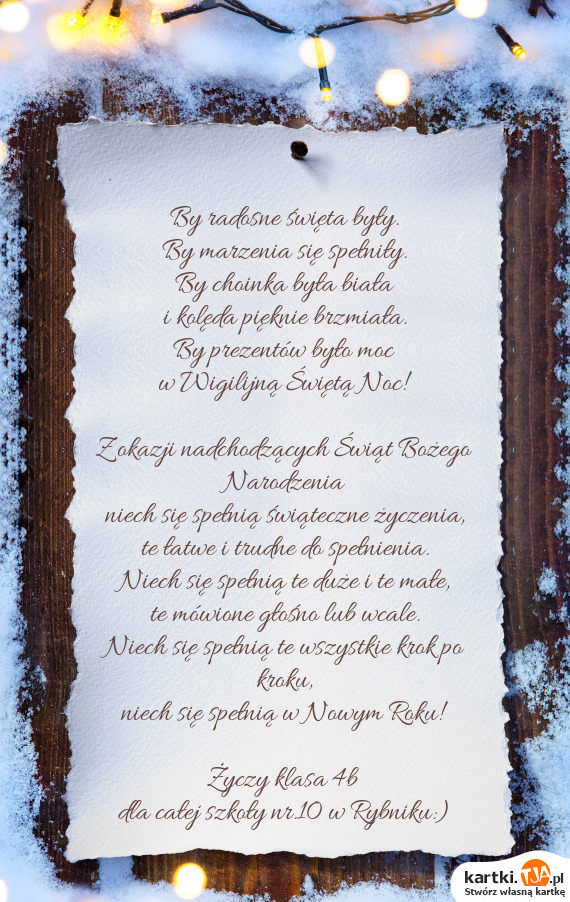 By radosne święta były.
By marzenia się spełniły.
By choinka była biała
i kolęda pięknie brzmiała.
By prezentów było moc
w Wigilijną Świętą Noc!
Z okazji nadchodzących Świąt Bożego
Narodzenia
niech się spełnią świąteczne życzenia,
te łatwe i trudne do spełnienia.
Niech się spełnią te duże i te małe,
te mówione głośno lub wcale.
Niech się spełnią te wszystkie krok po
kroku,
niech się spełnią w Nowym Roku!
Życzy klasa 4b
dla całej szkoły nr.10 w Rybniku:)
kartki.TJA.pl
Stwórz własną kartkę